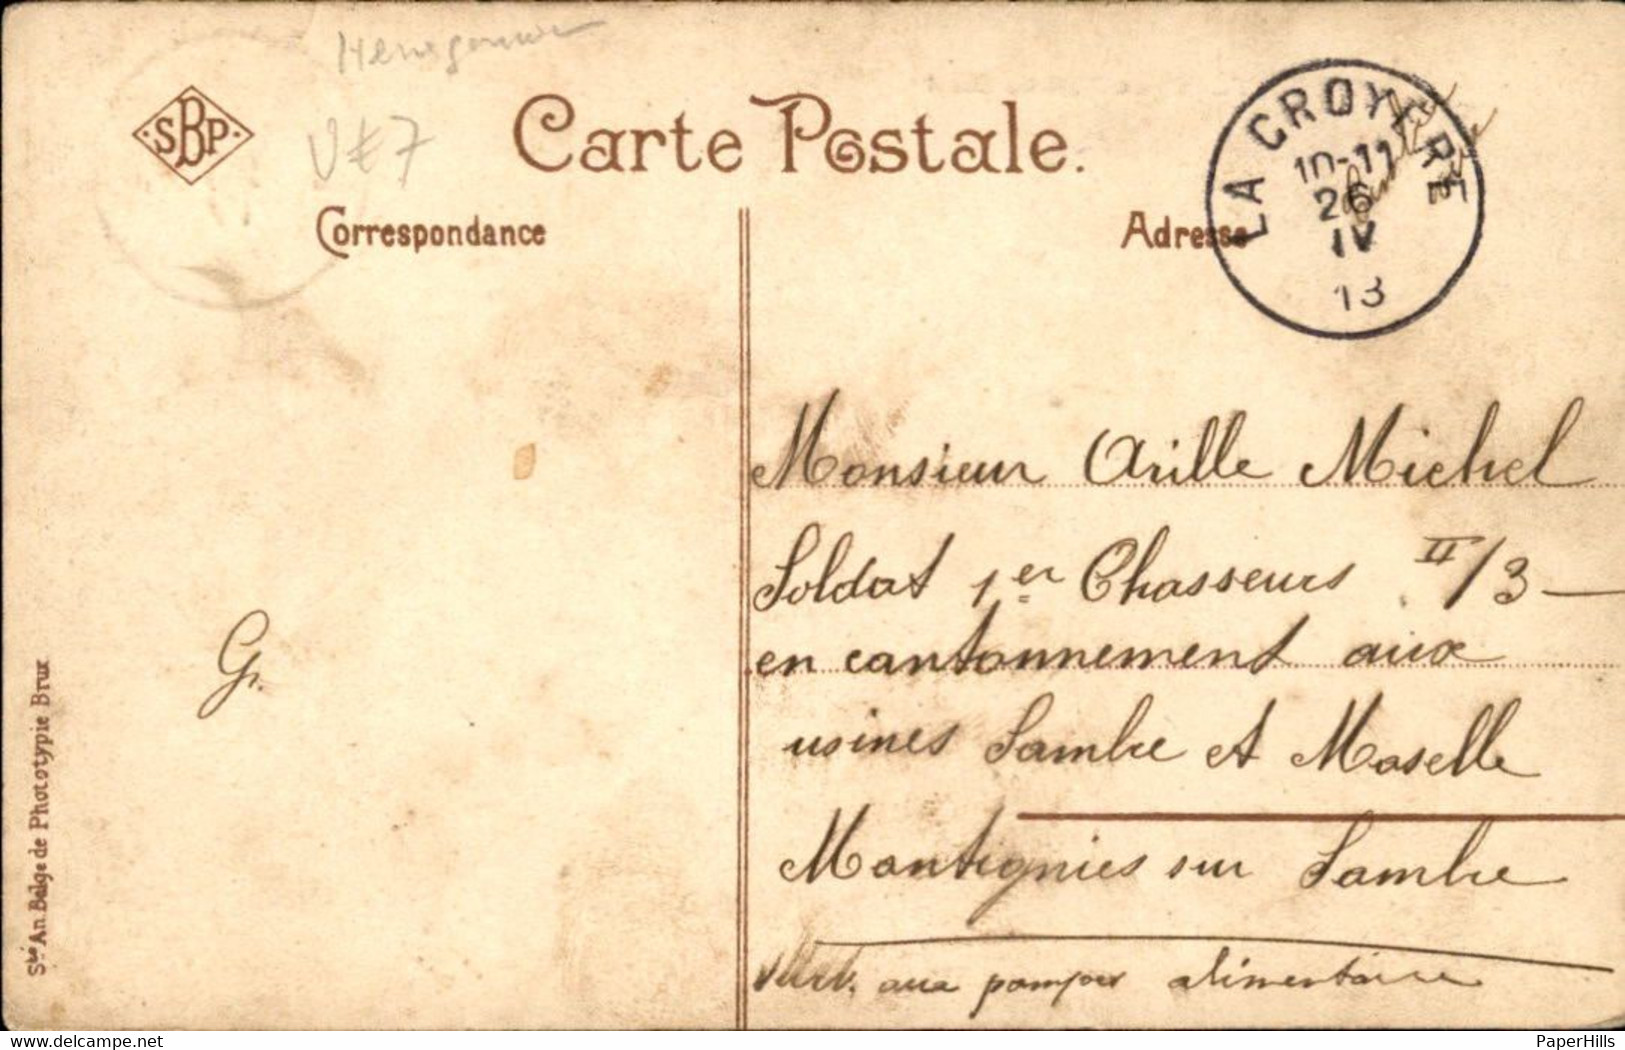 Henegouwen
V€7
SBP
Carte Postale.
Correspondance
Adresse
LA CROYERE
10-11
26
IV
13
Monsieur Arille Michel
Soldat 1er Chasseurs II/3 —
en cantonnement aux
usines Sambre et Moselle
Montignies sur Sambre
aux pompes alimentaire
Gr.
Sté An. Belge de Phototypie Brux
www.delcampe.net
PaperHills